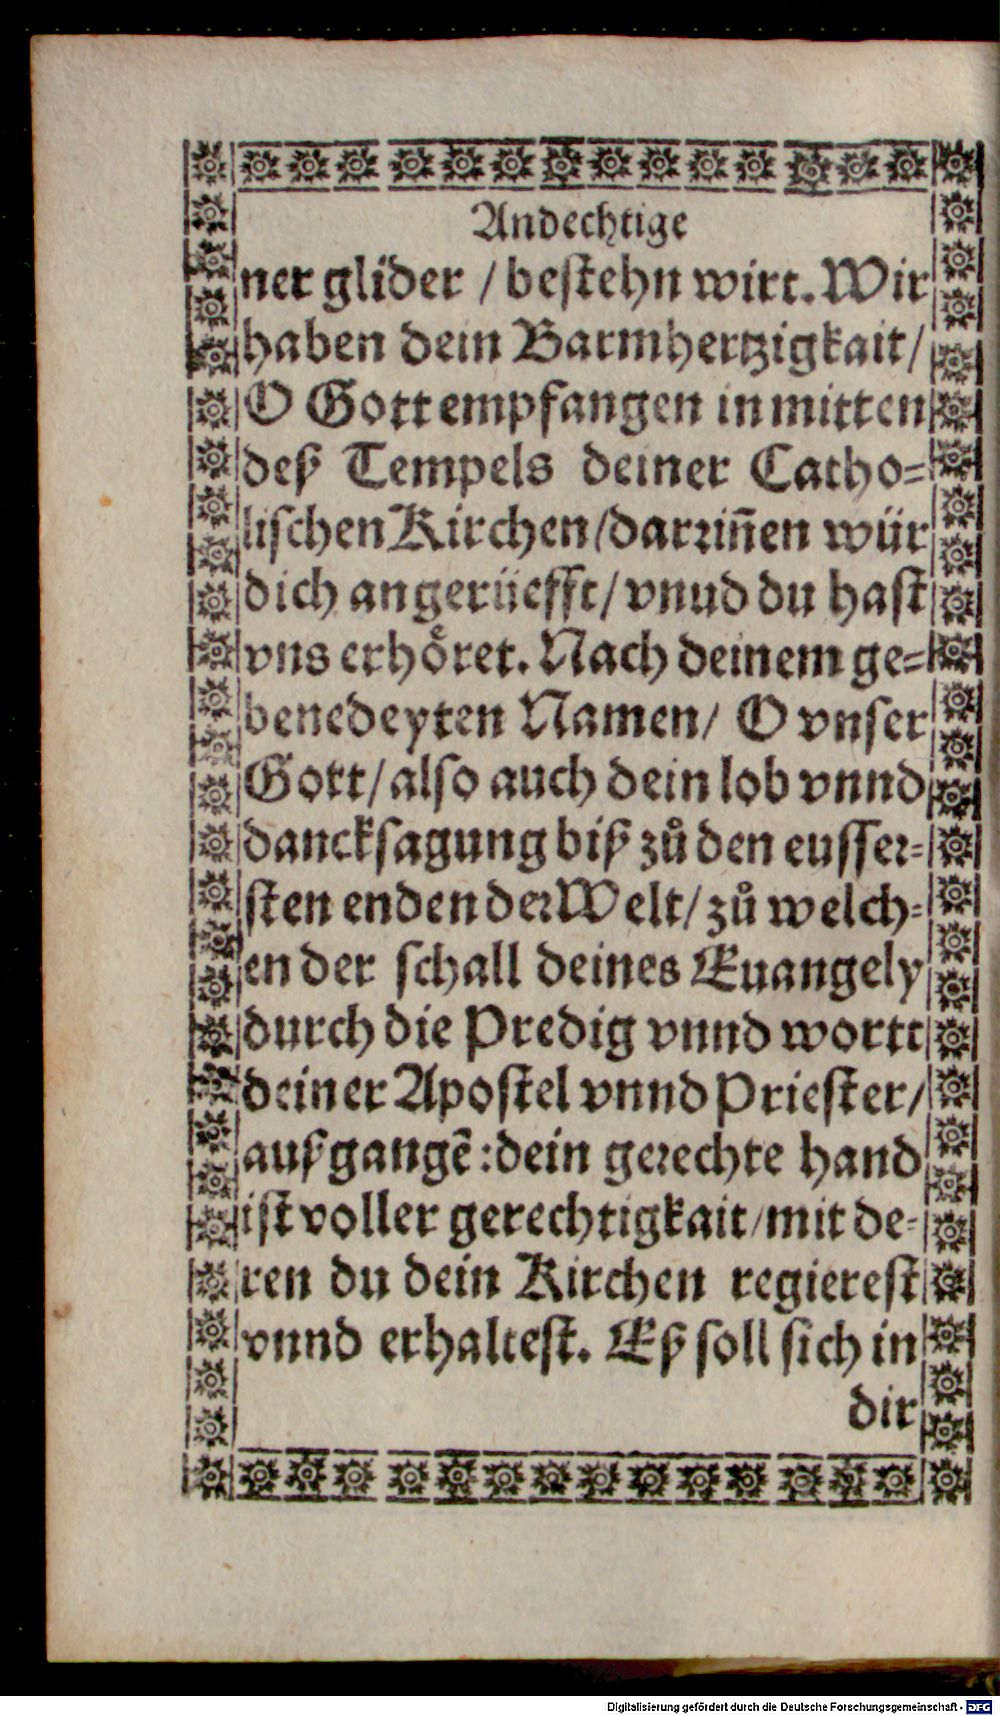 Andechtige
ner glider / bestehn wirt. Wir
haben dein Barmhertzigkait /
O Gott empfangen in mitten
deß Tempels deiner Catho=
lischen Kirchen / darrin̄en wür
dich angerüefft / vnud du hast
vns erhoͤret. Nach deinem ge=
benedeyten Namen / O vnser
Gott / also auch dein lob vnnd
dancksagung biß zů den eusser=
sten enden der Welt / zů welch=
en der schall deines Euangely
durch die Predig vnnd wortt
deiner Apostel vnnd Priester /
außgangē: dein gerechte hand
ist voller gerechtigkait / mit de=
ren du dein Kirchen regierest
vnnd erhaltest. Eß soll sich in
dir
Digitalisierung gefördert durch die Deutsche Forschungsgemeinschaft - DFG